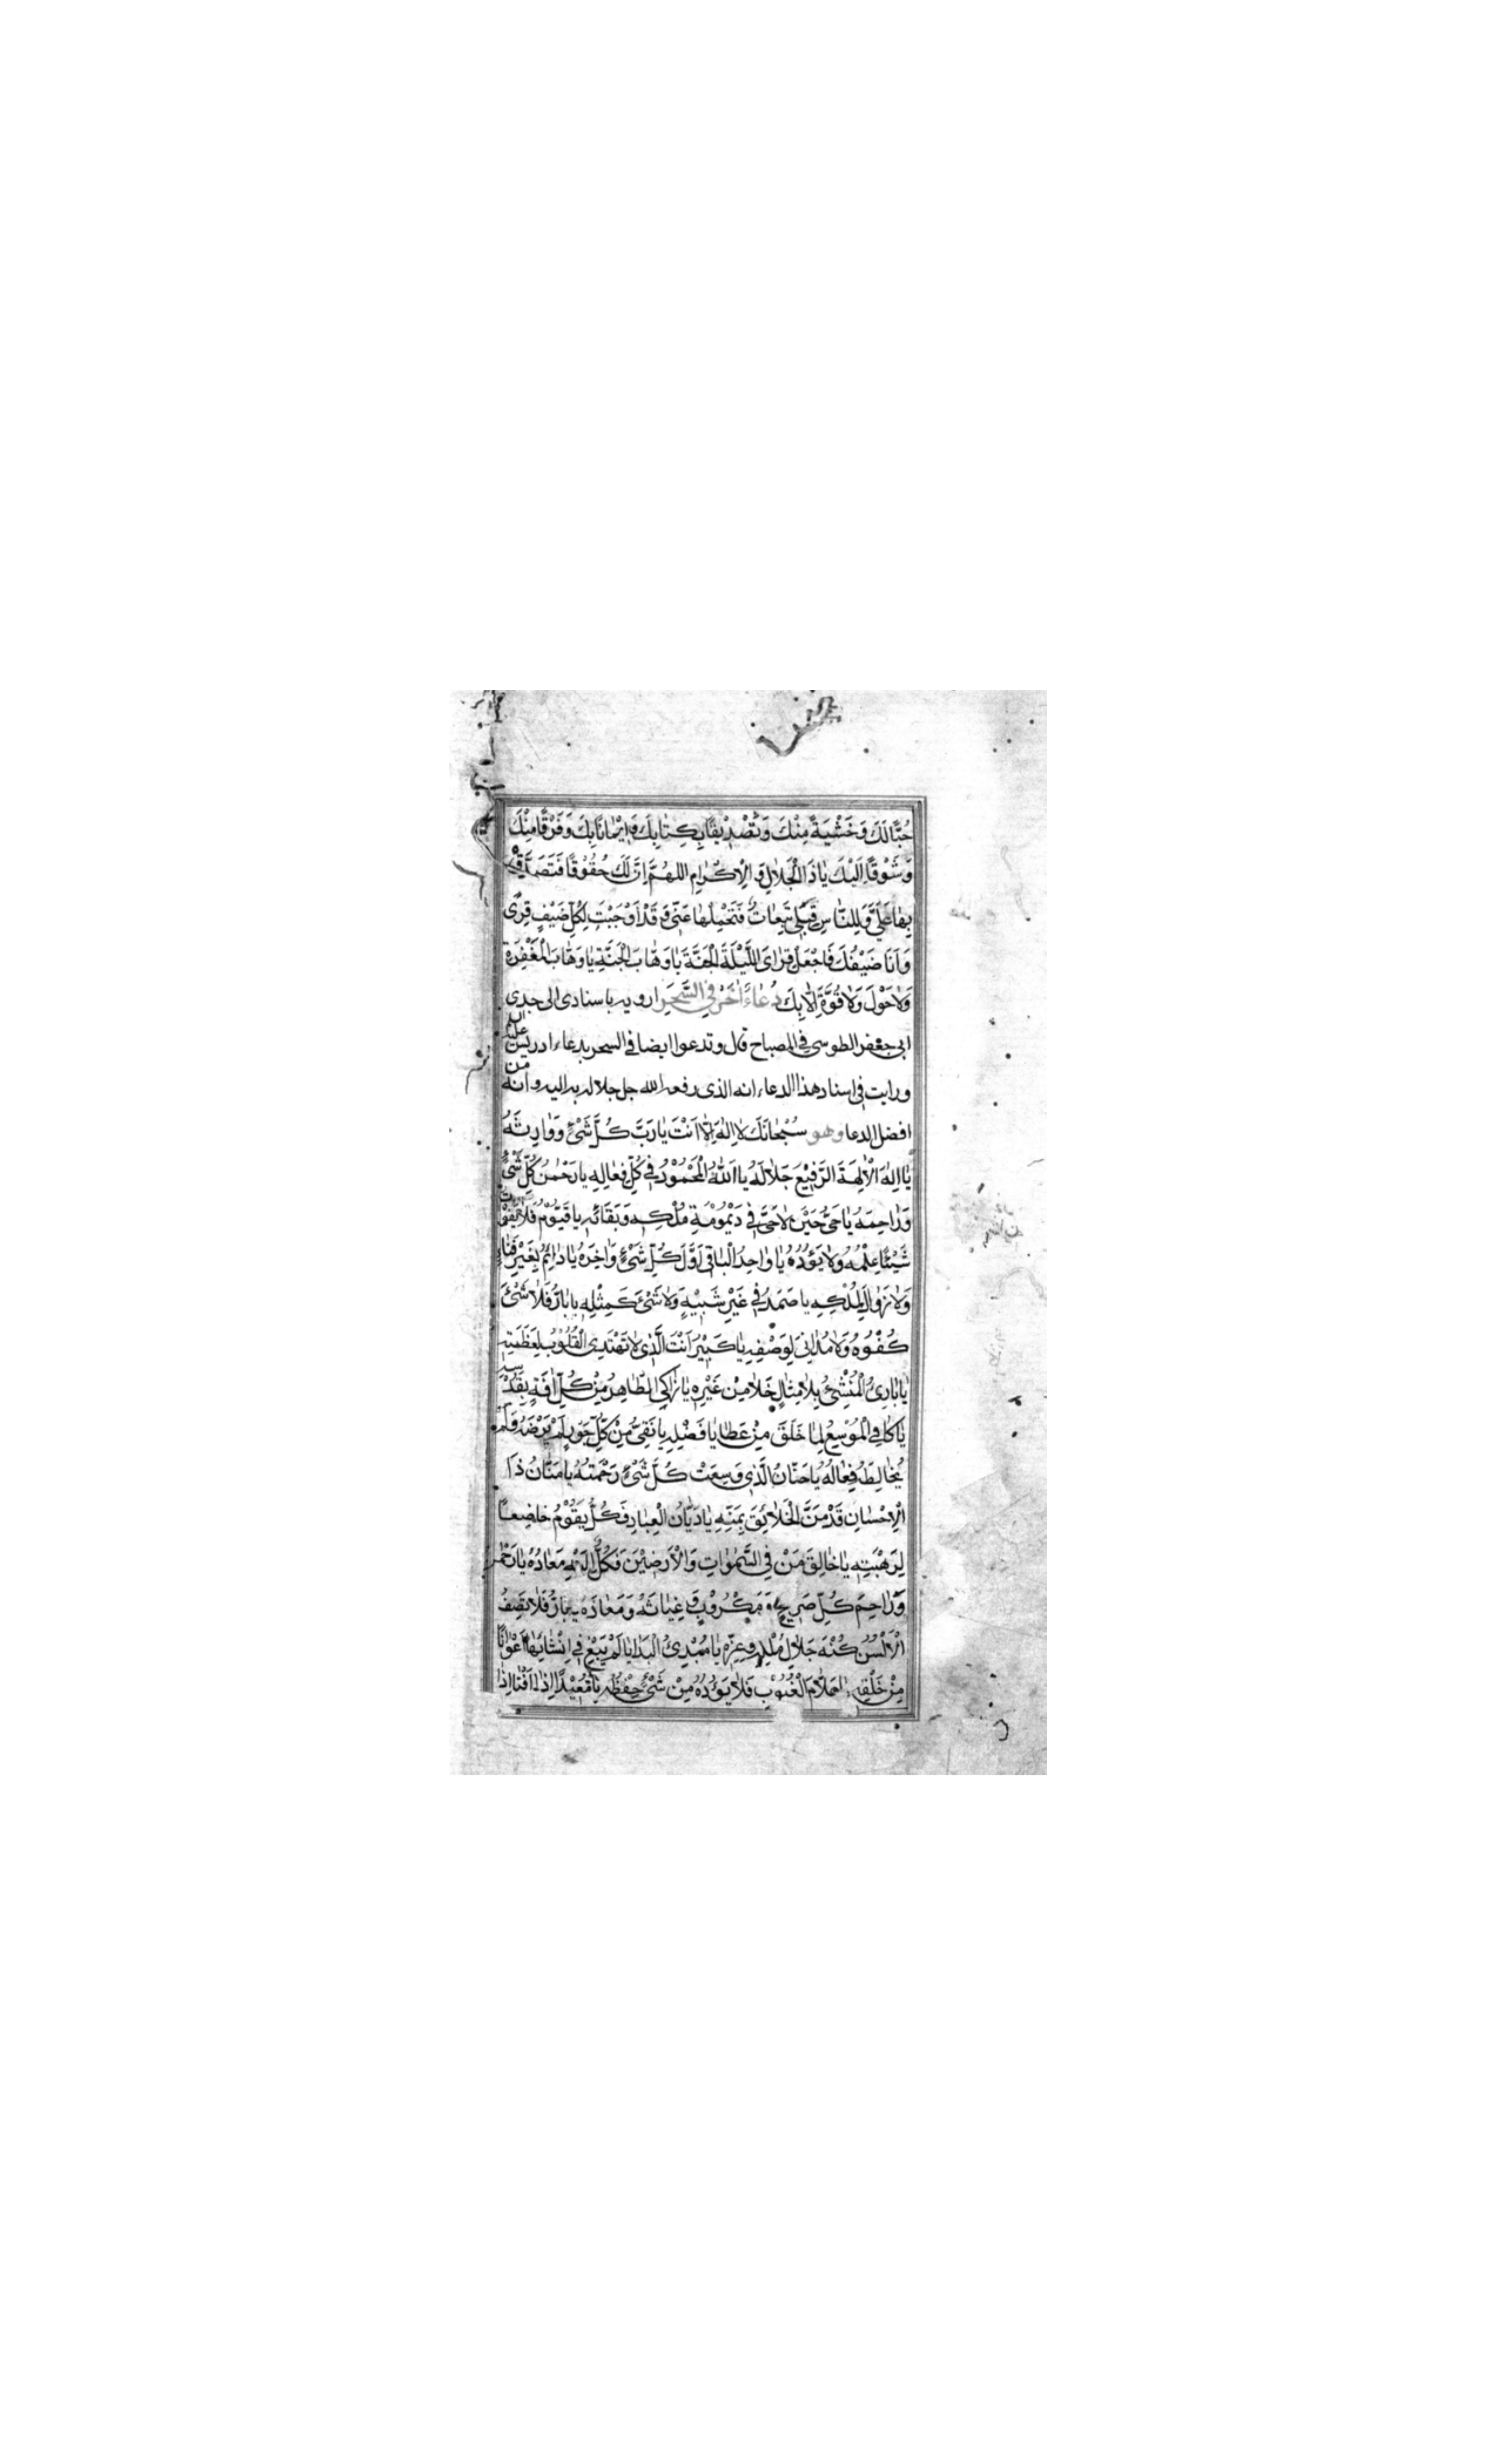 حُبًّا لَكَ وَخَشْيَةً مِنْكَ وَتَصْدِيْقًا بِكِتَابِكَ وَاِيْمَانًا بِكَ وَفَرَقًا مِنْكَ
وَشَوْقًا اِلَيْكَ يَا ذَا الْجَلَالِ وَالْاِكْرَامِ اللهُمَّ اِنَّ لَكَ حُقُوْقًا فَتَصَدَّقْ
بِهَا عَلَيَّ وَلِلنَّاسِ قِبَلِي تَبِعَاتٌ فَتَحَمَّلْهَا عَنِّي وَقَدْ اَوْجَبْتَ لِكُلِّ ضَيْفٍ قِرًى
وَاَنَا ضَيْفُكَ فَاجْعَلْ قِرَايَ اللَّيْلَةَ الْجَنَّةَ يَا وَهَّابَ الْجَنَّةِ يَا وَهَّابَ الْمَغْفِرَةِ
وَلَا حَوْلَ وَلَا قُوَّةَ اِلَّا بِكَ دُعَاءٌ اٰخَرُ فِي السَّحَرِ ارويه باسنادى الى جدى
ابى جعفر الطوسي فى المصباح قال وتدعوا ايضا فى السحر بدعاء ادريس
ورايت فى اسناد هذا الدعاء انه الذى رفعه الله جل جلاله به اليه وانه من
افضل الدعا وهو سُبْحَانَكَ لَا اِلٰهَ اِلَّا اَنْتَ يَا رَبَّ كُلِّ شَيْءٍ وَوَارِثَهُ
يَا اِلٰهَ الْاٰلِهَةِ الرَّفِيْعَ جَلَالُهُ يَا اَللّٰهُ الْمَحْمُوْدُ فِي كُلِّ فِعَالِهِ يَا رَحْمٰنَ كُلِّ شَيْءٍ
وَرَاحِمَهُ يَا حَيُّ حِيْنَ لَا حَيَّ فِي دَيْمُوْمَةِ مُلْكِهِ وَبَقَائِهِ يَا قَيُّوْمُ فَلَا يَفُوْتُ
شَيْئًا عِلْمُهُ وَلَا يَؤُدُهُ يَا وَاحِدُ الْبَاقِي اَوَّلَ كُلِّ شَيْءٍ وَاٰخِرَهُ يَا دَائِمُ بِغَيْرِ فَنَاءٍ
وَلَا زَوَالَ لِمُلْكِهِ يَا صَمَدُ فِي غَيْرِ شَبِيْهٍ وَلَا شَيْءَ كَمِثْلِهِ يَا بَارُّ فَلَا شَيْءَ
كُفْوُهُ وَلَا مُدَانِيَ لِوَصْفِهِ يَا كَبِيْرُ اَنْتَ الَّذِي لَا تَهْتَدِي الْقُلُوْبُ لِعَظَمَتِهِ
يَا بَارِئُ الْمُنْشِئُ بِلَا مِثَالٍ خَلَا مِنْ غَيْرِهِ يَا زَاكِي الطَّاهِرُ مِنْ كُلِّ اٰفَةٍ بِقُدْسِهِ
يَا كَافِي الْمُوْسِعُ لِمَا خَلَقَ مِنْ عَطَايَا فَضْلِهِ يَا نَقِيُّ مِنْ كُلِّ جَوْرٍ لَمْ يَرْضَهُ وَلَمْ
يُخَالِطْهُ فِعَالُهُ يَا حَنَّانُ الَّذِي وَسِعَتْ كُلَّ شَيْءٍ رَحْمَتُهُ يَا مَنَّانُ ذَا
الْاِحْسَانِ قَدْ مَنَّ الْخَلَائِقَ بِمَنِّهِ يَا دَيَّانَ الْعِبَادِ فَكُلٌّ يَقُوْمُ خَاضِعًا
لِرَهْبَتِهِ يَا خَالِقَ مَنْ فِي السَّمٰوَاتِ وَالْاَرَضِيْنَ فَكُلٌّ اِلَيْهِ مَعَادُهُ يَا رَحْمٰنَ
وَرَاحِمَ كُلِّ صَرِيْخٍ وَمَكْرُوْبٍ وَغِيَاثَهُ وَمَعَاذَهُ يَا بَارُّ فَلَا تَصِفُ
الْاَلْسُنُ كُنْهَ جَلَالِ مُلْكِهِ وَعِزِّهِ يَا مُبْدِئُ الْبَدَايَا لَمْ يَبْغِ فِي اِنْشَائِهَا اَعْوَانًا
مِنْ خَلْقِهِ يَا عَلَّامَ الْغُيُوْبِ فَلَا يَؤُدُهُ مِنْ شَيْءٍ حِفْظُهُ يَا مُعِيْدًا اِذَا اَفْنَا اِذَا